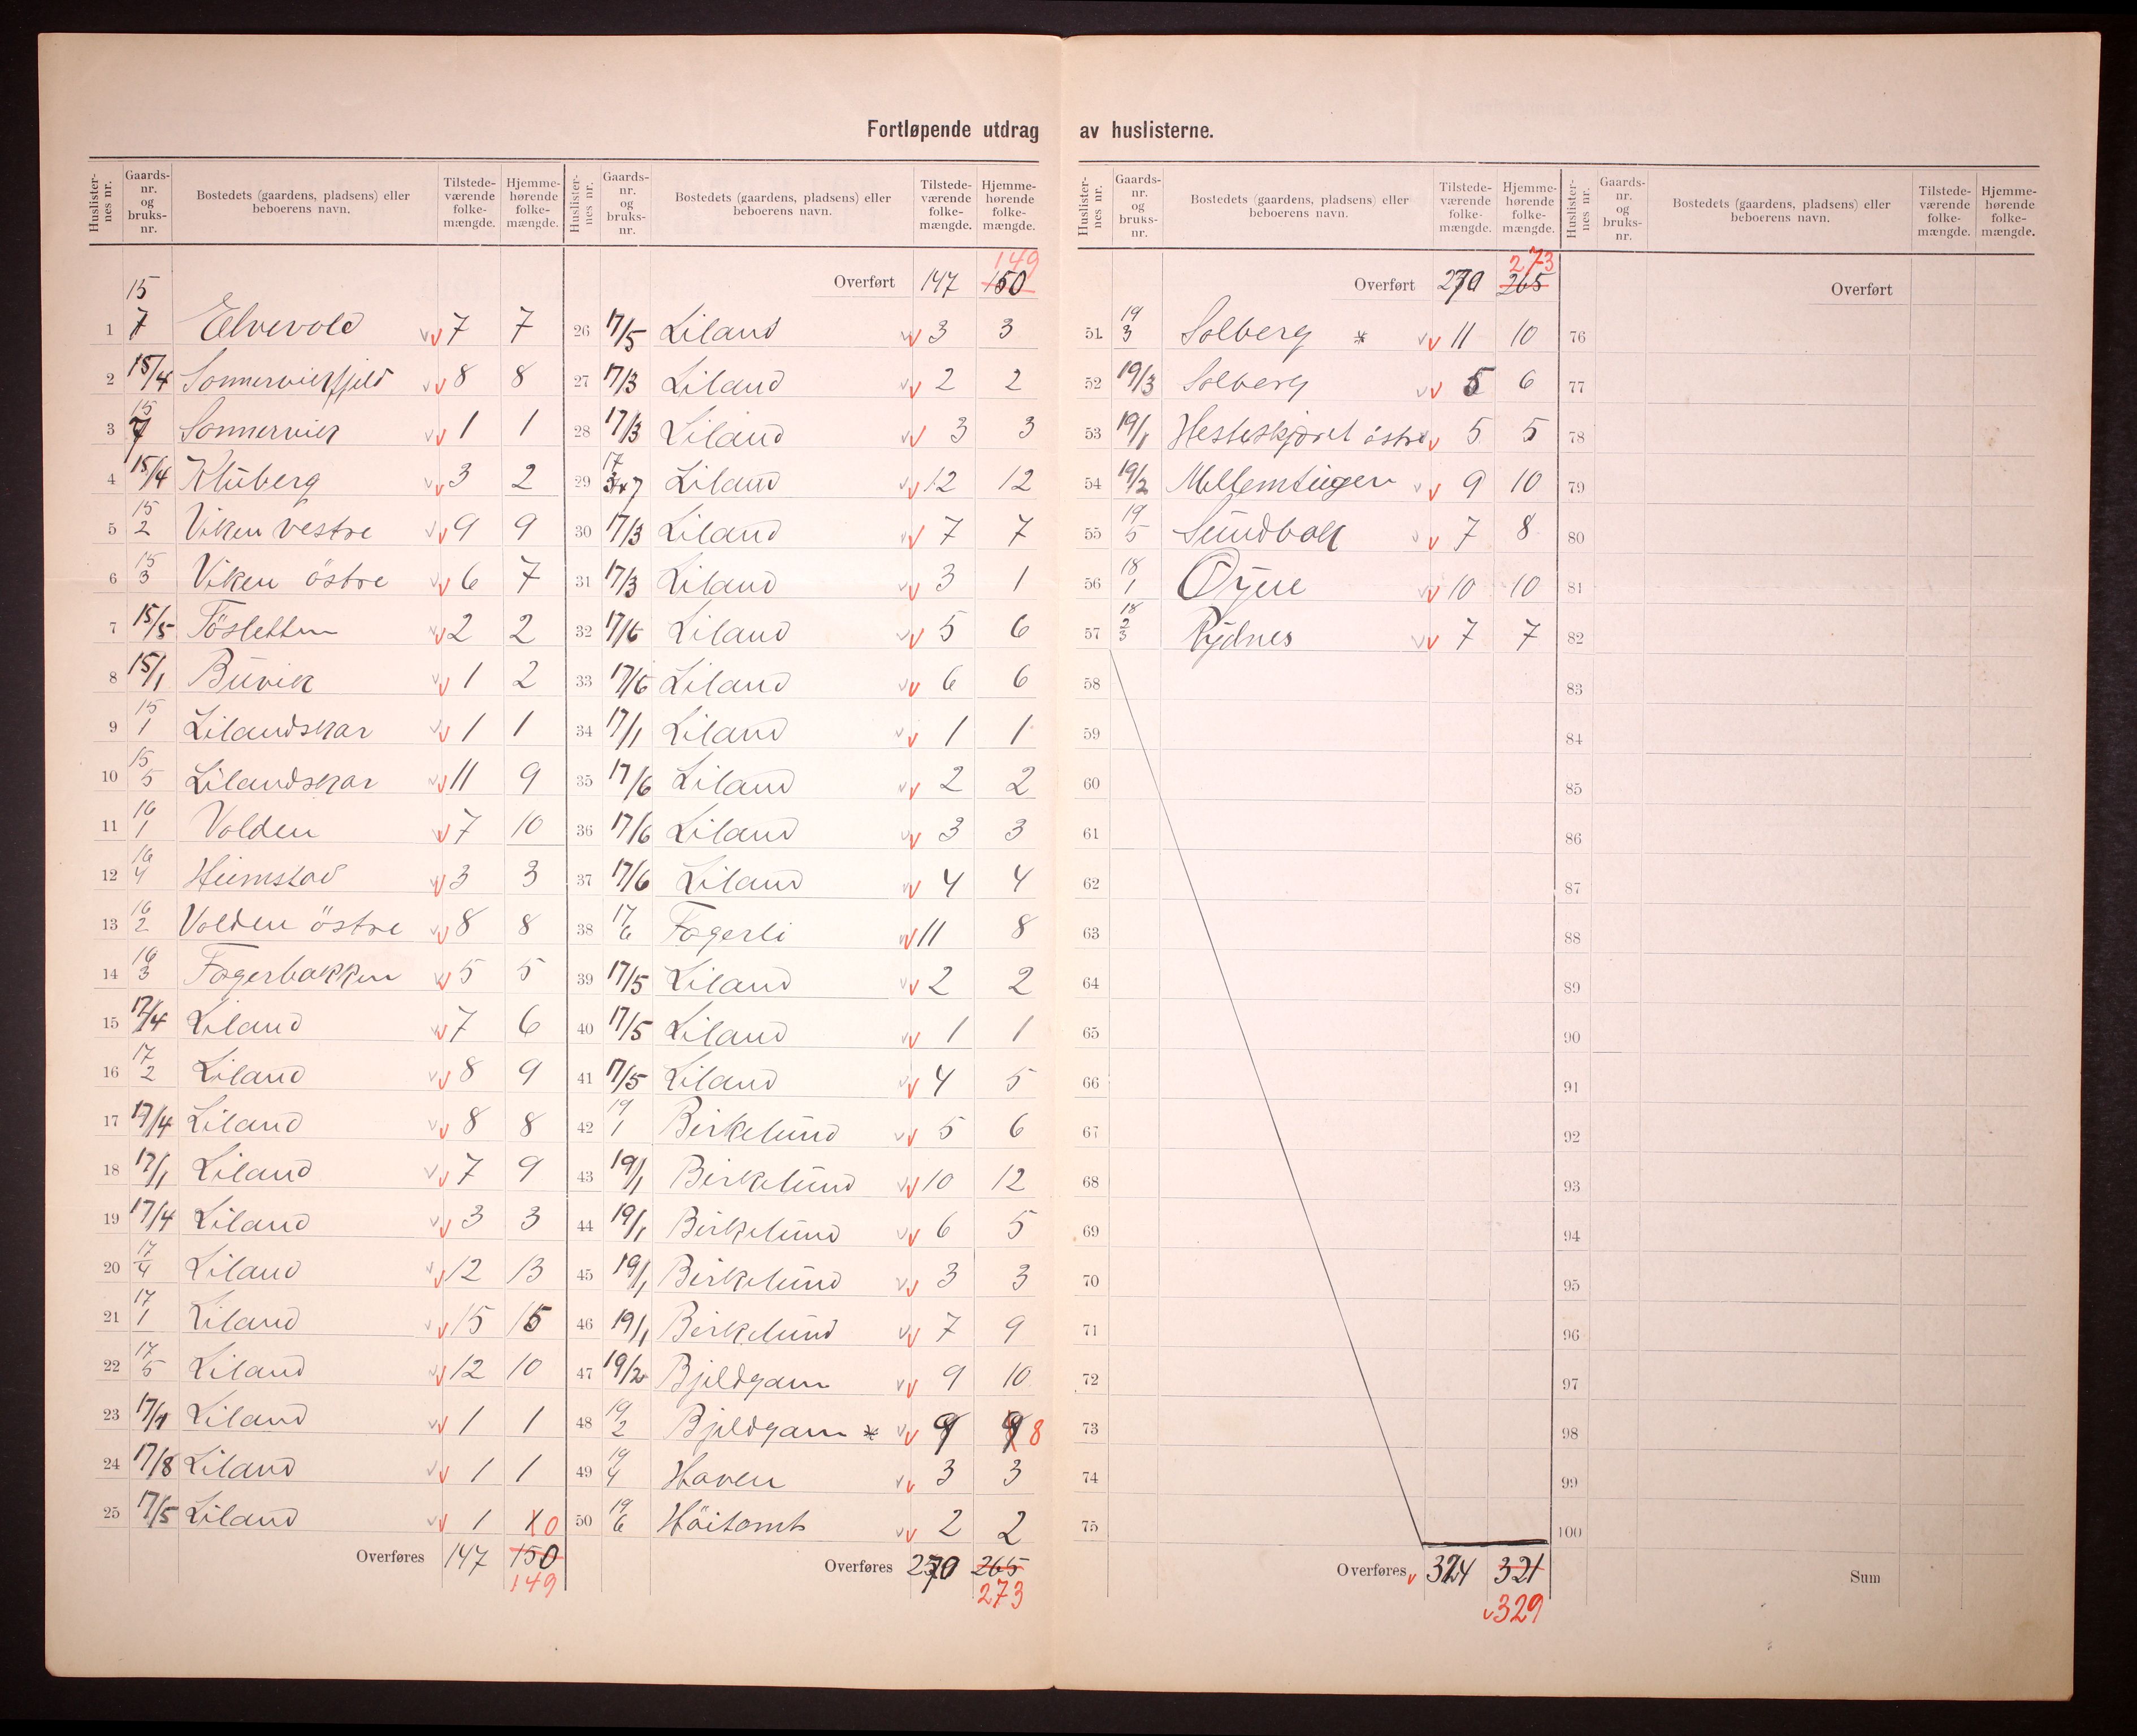 Fortløpende utdrag av huslisterne.
Huslister-nes nr. Gaards-nr. og bruks-nr. Bostedets (gaardens, pladsens) eller beboerens navn. Tilstede-værende folke-mængde. Hjemme-hørende folke-mængde.
1 15/7 Elvevold 7 7
2 15/4 Sommervikfjeld 8 8
3 15/7 Sommervik 1 1
4 15/4 Klüberg 3 2
5 15/2 Viken vestre 9 9
6 15/3 Viken östre 6 7
7 15/5 Töslettun 2 2
8 15/1 Buvik 1 2
9 15/1 Lilandskar 1 1
10 15/5 Lilandskar 11 9
11 16/1 Volden 7 10
12 16/4 Heimstad 3 3
13 16/2 Volden östre 8 8
14 16/3 Fagerbakken 5 5
15 17/4 Liland 7 6
16 17/2 Liland 8 9
17 17/4 Liland 8 8
18 17/1 Liland 7 9
19 17/4 Liland 3 3
20 17/4 Liland 12 13
21 17/1 Liland 15 15
22 17/5 Liland 12 10
23 17/4 Liland 1 1
24 17/8 Liland 1 1
25 17/5 Liland 1 1 0
Overføres 147 150
149
Huslister-nes nr. Gaards-nr. og bruks-nr. Bostedets (gaardens, pladsens) eller beboerens navn. Tilstede-værende folke-mængde. Hjemme-hørende folke-mængde.
149
Overført 147 150
26 17/5 Liland 3 3
27 17/3 Liland 2 2
28 17/3 Liland 3 3
29 17/3+7 Liland 12 12
30 17/3 Liland 7 7
31 17/3 Liland 3 1
32 17/6 Liland 5 6
33 17/6 Liland 6 6
34 17/1 Liland 1 1
35 17/6 Liland 2 2
36 17/6 Liland 3 3
37 17/6 Liland 4 4
38 17/6 Fagerli 11 8
39 17/5 Liland 2 2
40 17/5 Liland 1 1
41 17/5 Liland 4 5
42 19/1 Birkelund 5 6
43 19/1 Birkelund 10 12
44 19/1 Birkelund 6 5
45 19/1 Birkelund 3 3
46 19/1 Birkelund 7 9
47 19/2 Bjeldgam 9 10
48 19/2 Bjeldgam * 9 9 8
49 19/4 Haven 3 3
50 19/6 Höitomt 2 2
Overføres 270 265
273
Huslister-nes nr. Gaards-nr. og bruks-nr. Bostedets (gaardens, pladsens) eller beboerens navn. Tilstede-værende folke-mængde. Hjemme-hørende folke-mængde.
273
Overført 270 265
51 19/3 Solberg * 11 10
52 19/3 Solberg 5 6
53 19/1 Hesteskjæret östre 5 5
54 19/2 Mellemtugen 9 10
55 19/5 Sundbakk 7 8
56 18/1 Öyne 10 10
57 18/2/3 Rydnes 7 7
58
59
60
61
62
63
64
65
66
67
68
69
70
71
72
73
74
75
Overføres 324 321
329
Huslister-nes nr. Gaards-nr. og bruks-nr. Bostedets (gaardens, pladsens) eller beboerens navn. Tilstede-værende folke-mængde. Hjemme-hørende folke-mængde.
Overført
76
77
78
79
80
81
82
83
84
85
86
87
88
89
90
91
92
93
94
95
96
97
98
99
100
Sum